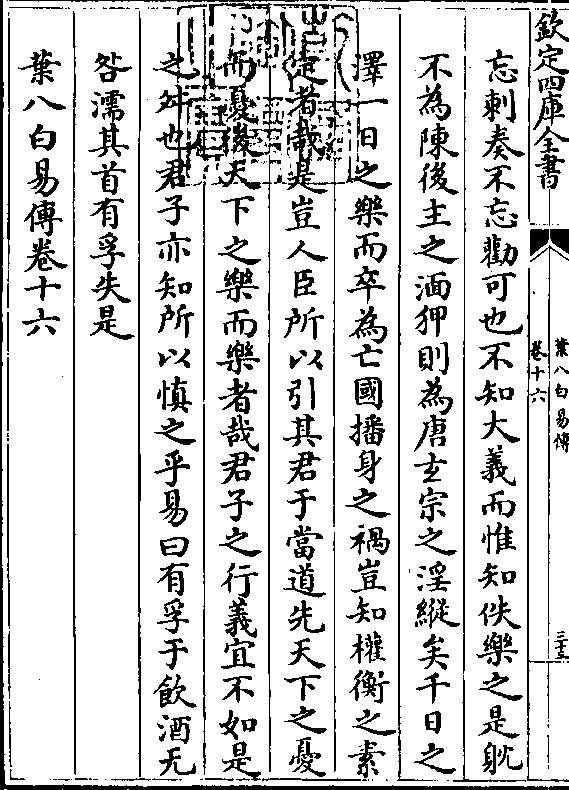 欽定四庫全書
葉八白易傳
卷十六
三十三
忘刺奏不忘勸可也不知大義而惟知佚樂之是躭
不為陳後主之湎狎則為唐𤣥宗之淫縱矣千日之
澤一日之樂而卒為亡國播身之禍豈知權衡之素
定者哉是豈人臣所以引其君于當道先天下之憂
而憂後天下之樂而樂者哉君子之行義宜不如是
之舛也君子亦知所以慎之乎易曰有孚于飲酒无
咎濡其首有孚失是
葉八白易傳卷十六